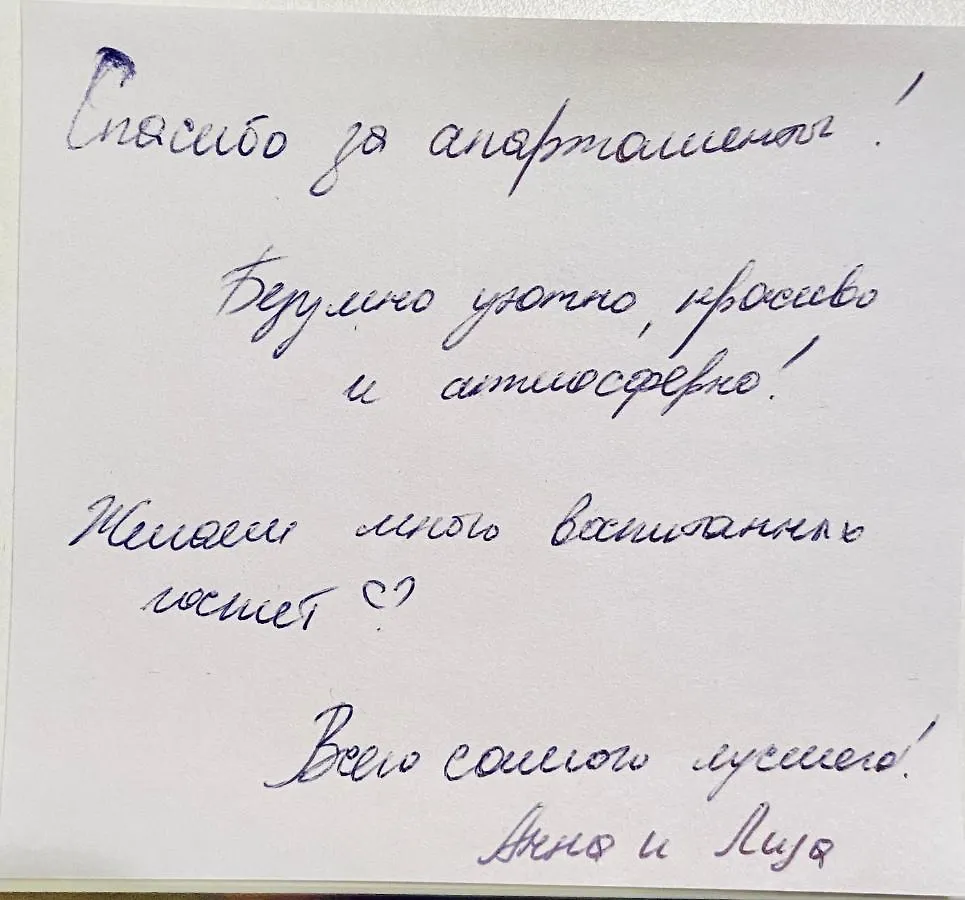 Спасибо за апартаменты!
Безумно уютно, красиво
и атмосферно!
Желаем много воспитанных
гостей ♡
Всего самого лучшего!
Анна и Лиза